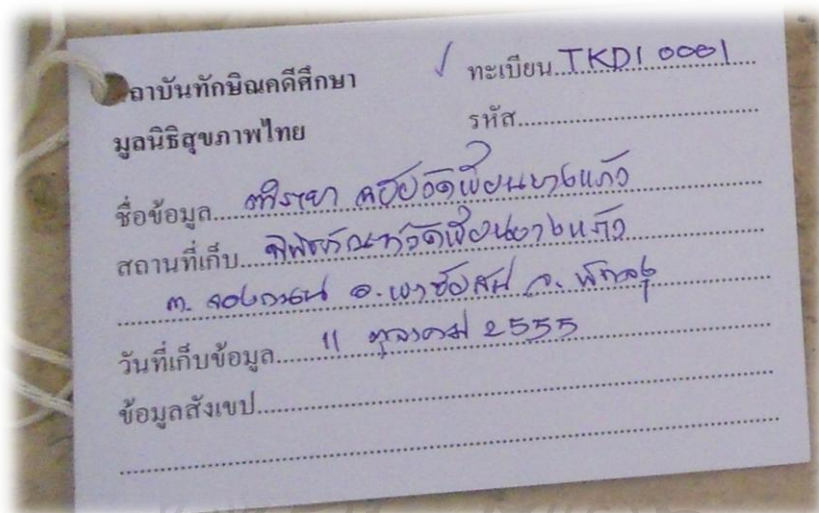 ถาบันทักษิณคดีศึกษา ✓ ทะเบียน TKDI 0001
มูลนิธิสุขภาพไทย รหัส
ชื่อข้อมูล ตำรายา วัดเขียนบางแก้ว
สถานที่เก็บ พิพิธภัณฑ์วัดเขียนบางแก้ว
ต. จองถนน อ. เขาชัยสน จ. พัทลุง
วันที่เก็บข้อมูล 11 ตุลาคม 2555
ข้อมูลสังเขป